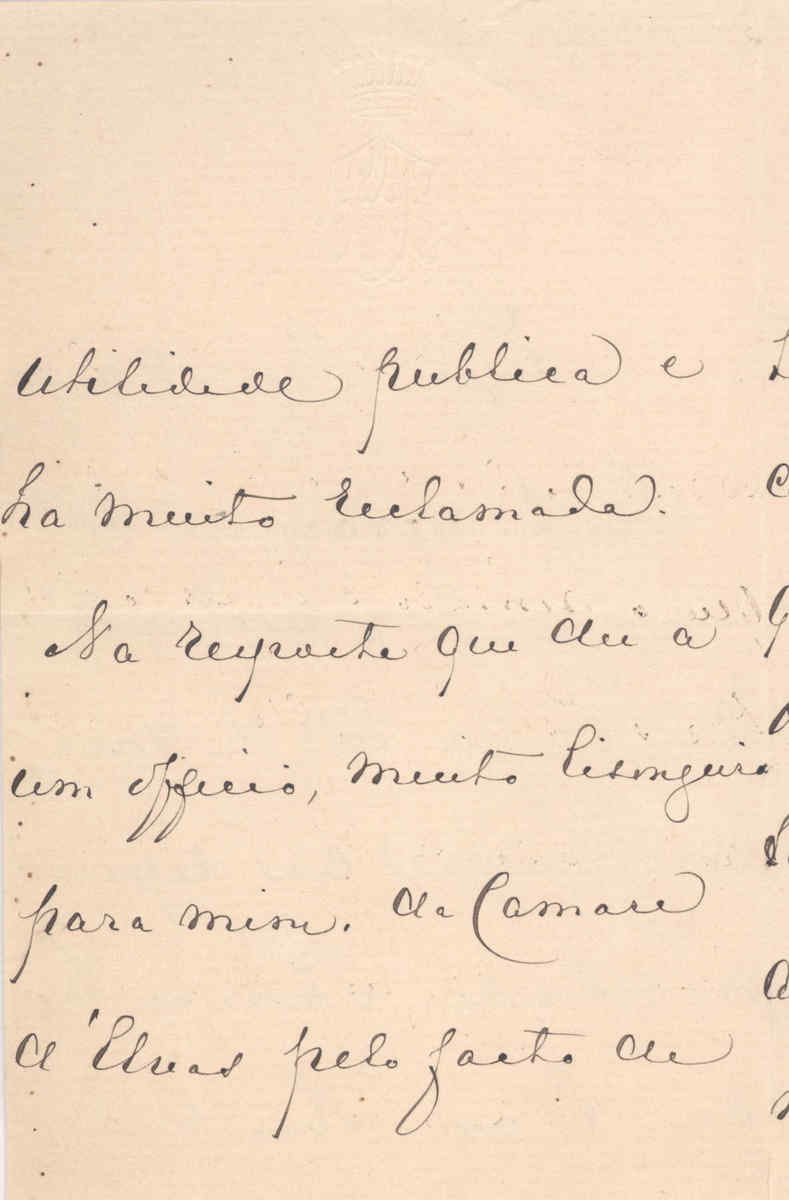 utilidade publica e
ha muito reclamada.
Na resposta que dei a
um officio, muito lisongeiro
para mim, da Camara
d'Elvas pelo facto de